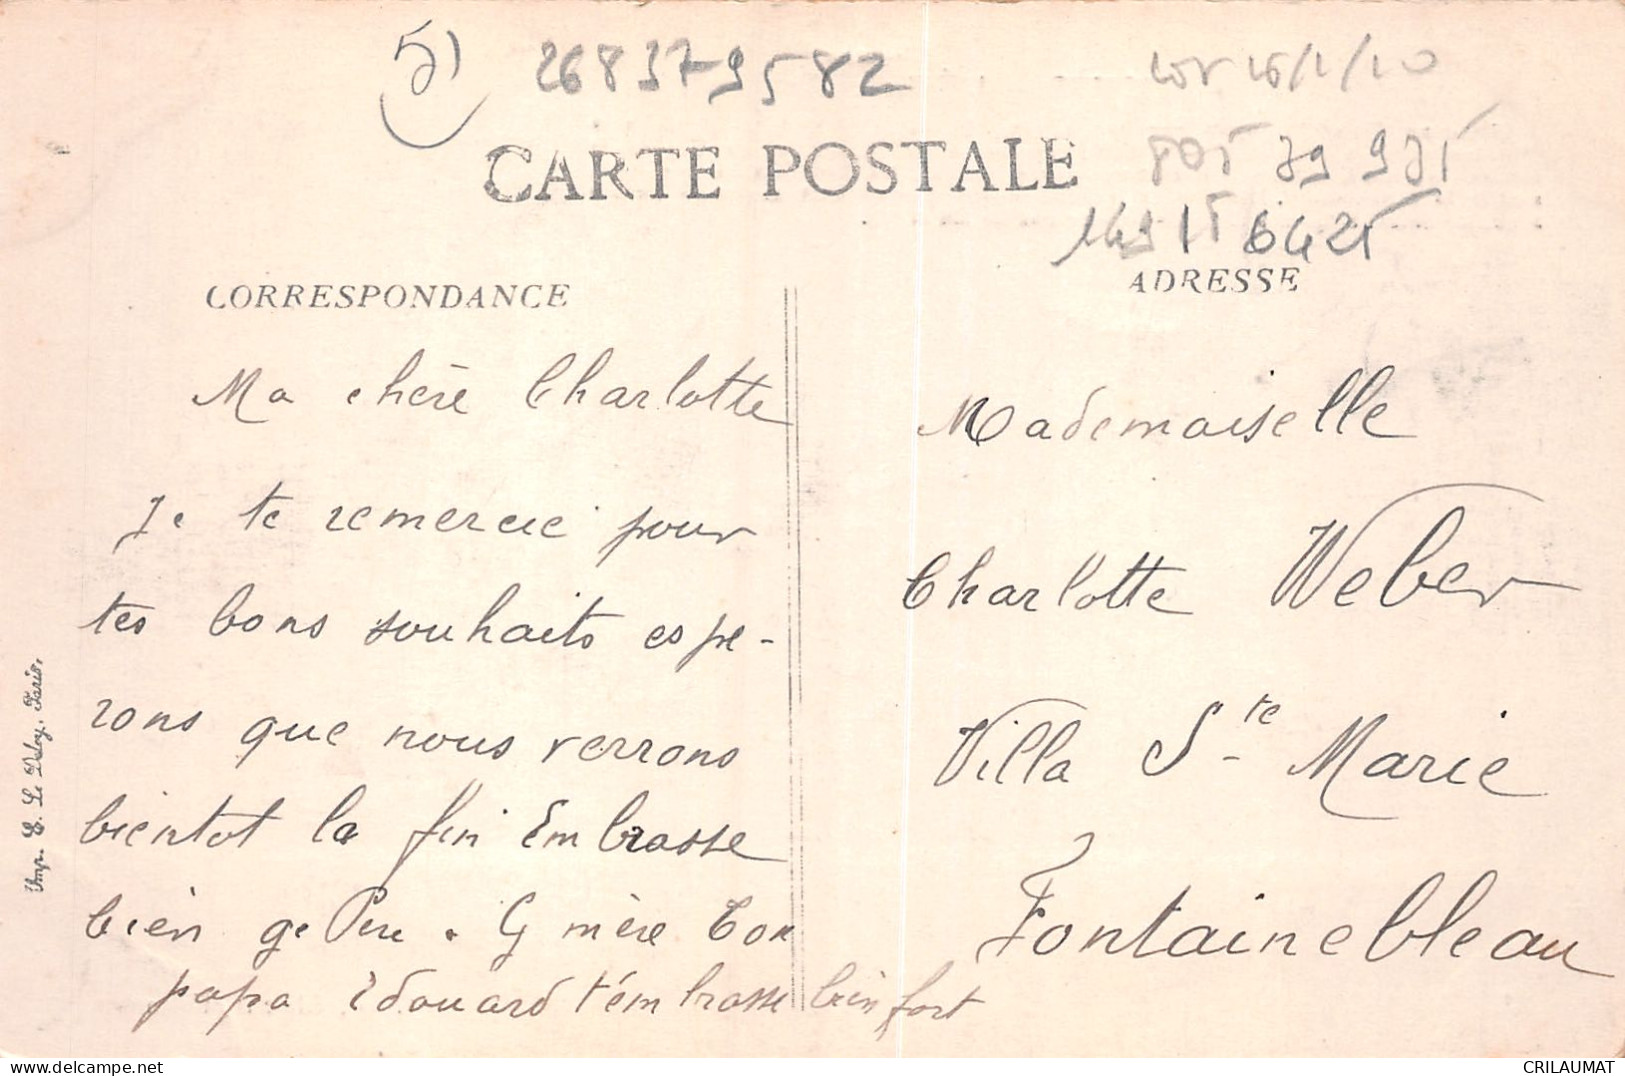 51
2683795 82
16/1/10
805 79 975
149 15 6425
CARTE POSTALE
CORRESPONDANCE
ADRESSE
Ma chère Charlotte
Je te remercie pour
tes bons souhaits espe-
rons que nous verrons
bientot la fin Embrasse
bien ge Père. G mère Ton
papa Edouard t'embrasse bien fort
Mademoiselle
Charlotte Weber
Villa Ste Marie
Fontainebleau
Imp. E. Le Deley, Paris.
CRILAUMAT